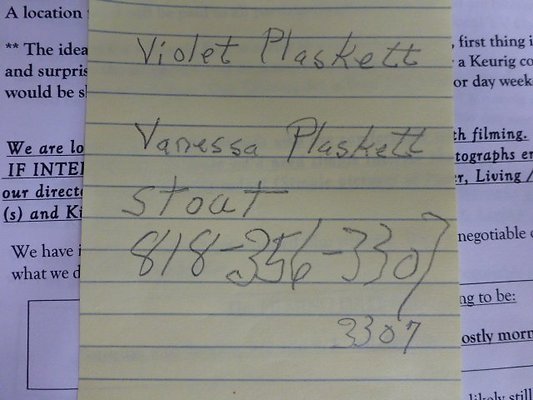 A location
** The idea
and surpris
would be s
We are lo
IF INTE
our direct
(s) and Ki
We have i
what we d
Violet Plaskett
Vanessa Plaskett
stout
818-356-3307
3307
, first thing i
a Keurig co
or day week
th filming.
tographs en
r, Living /
negotiable
ng to be:
ostly morn
likely still